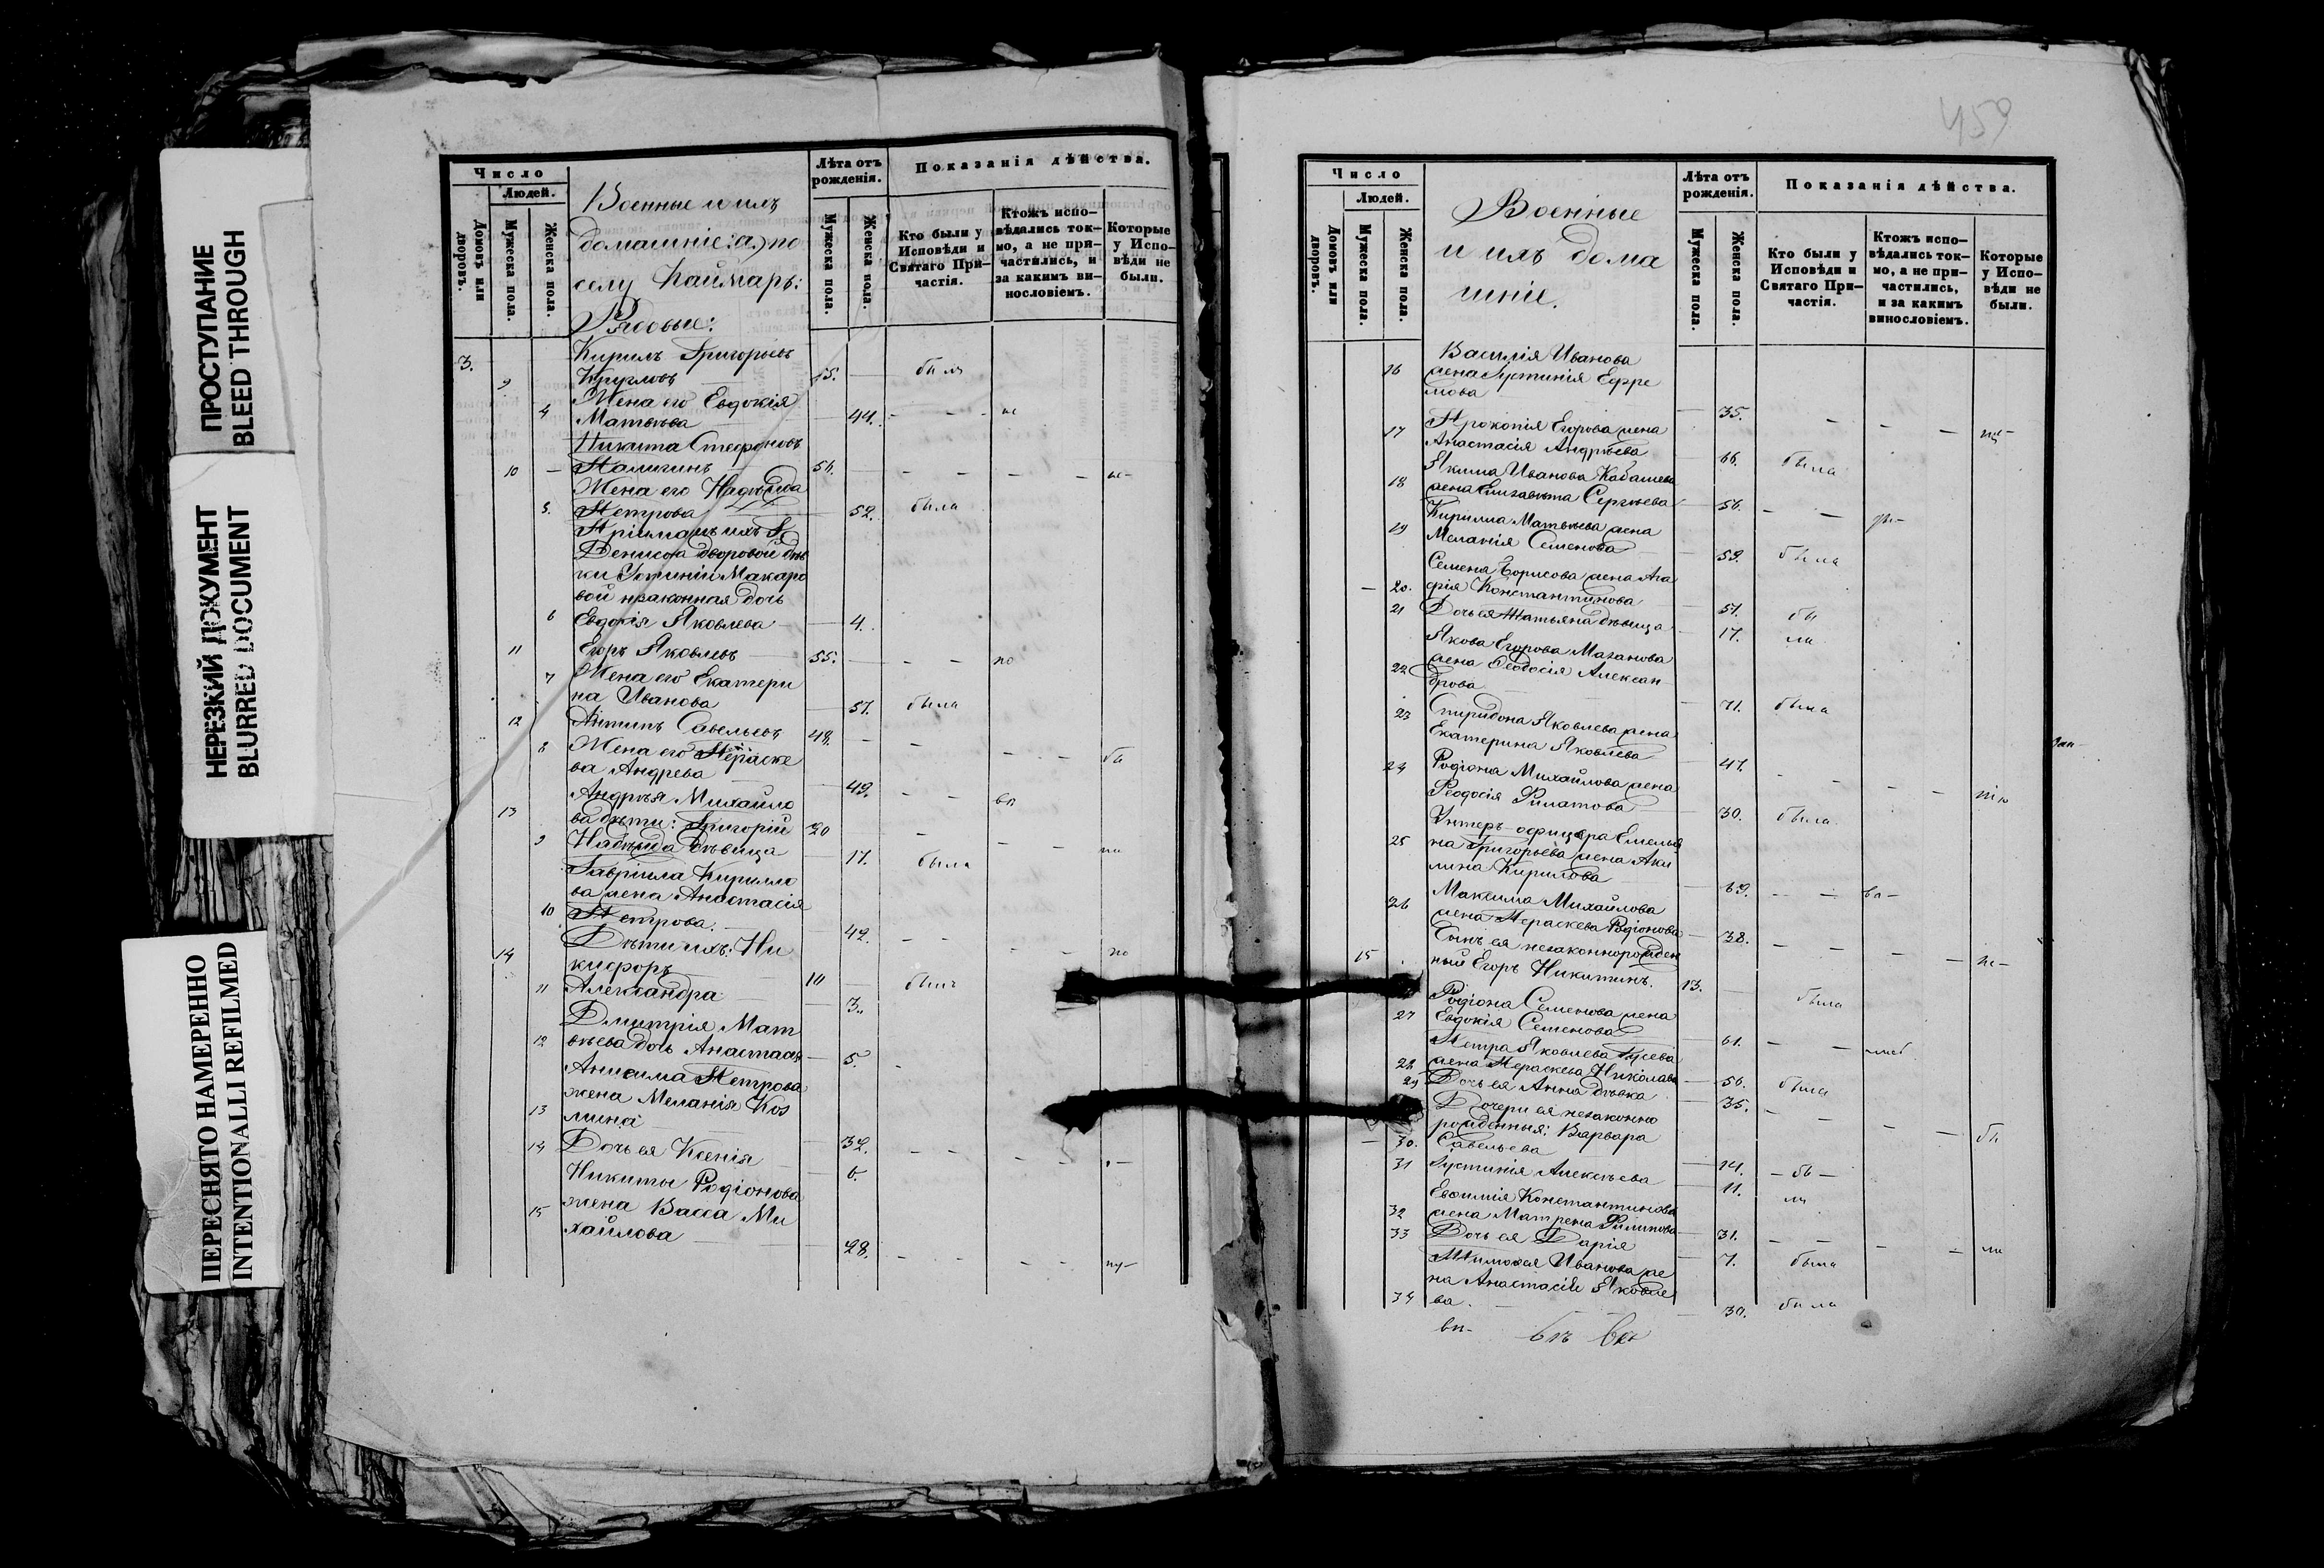 ПРОСТУПАНИЕ
BLEED THROUGH
НЕРЕЗКИЙ ДОКУМЕНТ
BLURRED DOCUMENT
ПЕРЕСНЯТО НАМЕРЕННО
INTENTIONALLI REFILMED
Число
Людей.
Домовъ или дворовъ.
Мужеска пола.
Женска пола.
Военные и ихъ
домашніе: а) по
селу Каймарь:
Рядовые:
Лѣта отъ рожденія.
Мужеска пола.
Женска пола.
Показанія дѣйства.
Кто были у Исповѣди и Святаго При-частія.
Ктожъ испо-вѣдались ток-мо, а не при-частились, и за какимъ ви-нословіемъ.
Которые у Испо-вѣди не были.
3.
Кирилъ Григорьевъ
9 Кругловъ 55. былъ
Жена его Евдокія
4 Матвѣева 44.
Никита Стефановъ
10 56.
Жена его Надежда
5. Петрова 52. была
Пріимышъ ихъ
Денисова дворовой дѣв
ки Устиніи Макаро
вой незаконная дочь
6 Евдокія Яковлева 4.
11 Егоръ Яковлевъ 55.
7 Жена его Екатери
на Иванова 51. была
12 Антипъ Савельевъ 48.
8 Жена его Параске
ва Андрева 49.
Андрея Михайло
13 ва дѣти: Григорій 20
9 Надежда дѣвица 17. была
Гавріила Кирилло
ва жена Анастасія
10 Петрова. 42.
Дѣти ихъ: Ни
14 кифоръ 10 былъ
11 Александра 3.
Дмитрія Мат
12 вѣева дочь Анастасія 5.
Анисима Петрова
жена Меланія Коз
13 мина 32.
14 Дочь ея Ксенія 6.
Никиты Родіонова
15 жена Васса Ми
хайлова 28.
459
Число
Людей.
Домовъ или дворовъ.
Мужеска пола.
Женска пола.
Военные
и ихъ дома
шніе.
Лѣта отъ рожденія.
Мужеска пола.
Женска пола.
Показанія дѣйства.
Кто были у Исповѣди и Святаго При-частія.
Ктожъ испо-вѣдались ток-мо, а не при-частились, и за какимъ винословіемъ.
Которые у Испо-вѣди не были.
Василія Иванова
16 жена Іустинія Ефре
мова 35.
Прокопія Егорова жена
17 Анастасія Андрѣева 66. была
Якима Иванова Кабашева
18 жена Елизавета Сергѣева 56.
Кирилла Матвѣева жена
19 Меланія Семенова 59. была
Семена Борисова жена Ага
20. фія Константинова 51. бы
21 Дочь ея Татьяна дѣвица 17. ла
Якова Егорова Мазанова
22 жена Ѳеодосія Алексан
дрова 71. была
23 Спиридона Яковлева жена
Екатерина Яковлева 47.
24 Родіона Михайлова жена
Ѳеодосія Филатова 30. была
Унтеръ офицера Емелья
25 на Григорьева жена Аки
лина Кирилова 69.
Максима Михайлова
26 жена Параскева Родіонова 38.
Сынъ ея незаконнорожден
15 ный Егоръ Никитинъ. 13. была
Родіона Семенова жена
27 Евдокія Семенова 61.
Петра Яковлева Гусева
28 жена Параскева Николава 56. была
29 Дочь ея Анна дѣвка 35.
Дочери ея незаконно
рожденныя: Варвара
30. Савельева 14. бы
31 Іустинія Алексѣева 11. ла
Евфимія Константинова
32 жена Матрена Филипова 31.
33 Дочь ея Дарія 7. была
Тимофея Иванова же
на Анастасія Яковле
34 ва. 30. была